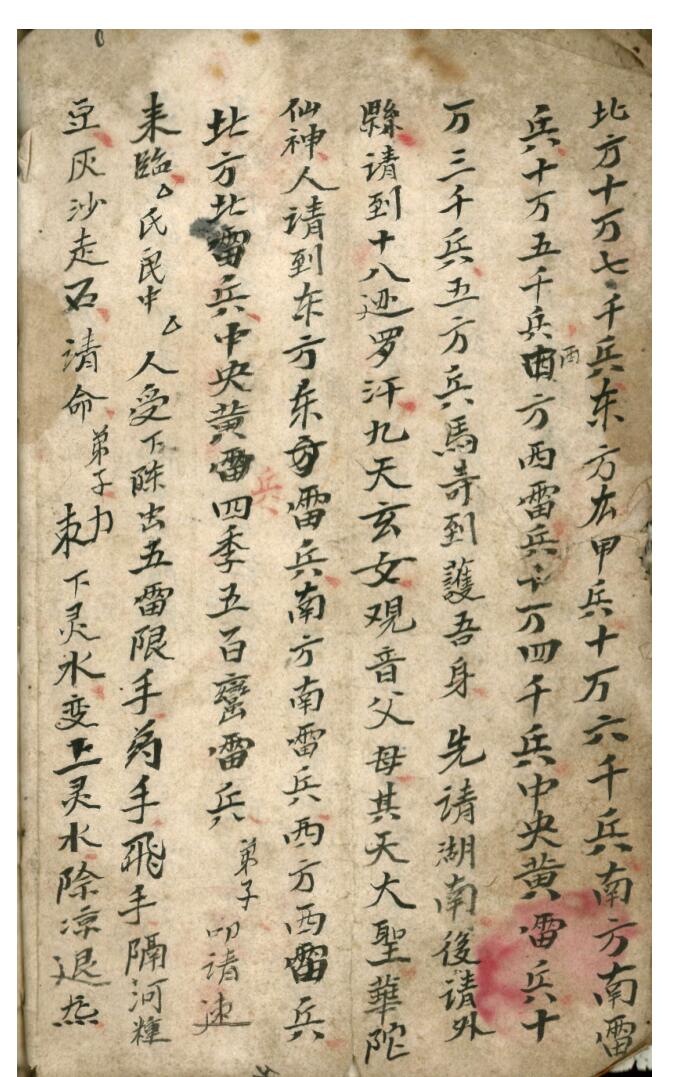 北方十万七千兵东方太甲兵十万六千兵南方南雷
兵十万五千兵西方西雷兵十万四千兵中央黄雷兵十
万三千兵五方兵馬奇到護吾身先请湖南後请外
縣请到十八迹罗汗九天玄女观音父母其天大聖華陀
仙神人请到东方东方雷兵南方南雷兵西方西雷兵
北方北雷兵中央黄雷四季五百蛮雷兵弟子叩请速
来臨厶氏民中厶人受下除出五雷限手為手飛手隔河種
豆灰沙走石请命弟子勑下灵水变上灵水除凉退